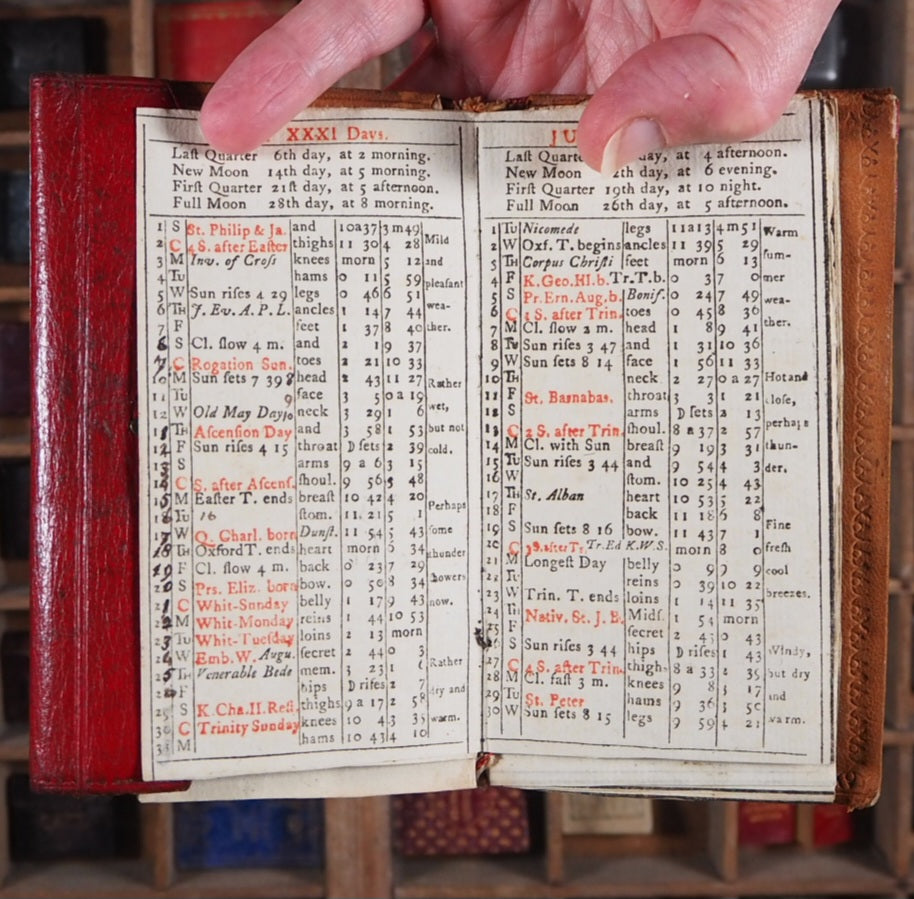 XXXI Days.
Laſt Quarter 6th day, at 2 morning.
New Moon 14th day, at 5 morning.
Firſt Quarter 21ſt day, at 5 afternoon.
Full Moon 28th day, at 8 morning.
1 S St. Philip & Ja. and 10a37 3m49
2 C 4 S. after Eaſter thighs 11 30 4 28 Mild
3 M Inv. of Croſs knees morn 5 12 and
4 Tu hams 0 11 5 59 pleaſant
5 W Sun riſes 4 29 legs 0 46 6 51 wea-
6 TH J. Ev. A. P. L. ancles 1 14 7 44
7 F feet 1 37 8 40 ther.
8 S Cl. ſlow 4 m. and 2 1 9 37
C Rogation Sun. toes 2 21 10 33
10 M Sun ſets 7 39 head 2 43 11 27 Rather
11 Tu face 3 5 0a19
12 W Old May Day neck 3 29 1 6 wet,
TH Aſcenſion Day and 3 58 1 53 but not
F Sun riſes 4 15 throat D ſets 2 39 cold.
S arms 9a 6 3 15
C S. after Aſcenſ. ſhoul. 9 56 3 48
M Eaſter T. ends breaſt 10 42 4 20 Perhaps
Tu 16 ſtom. 11 21 5 1
W Q. Charl. born Dunſt. 11 54 5 43 ſome
TH Oxford T. ends heart morn 6 34 thunder
F Cl. ſlow 4 m. back 0 23 7 29
S Prs. Eliz. born bow. 0 50 8 34 ſhowers
C Whit-Sunday belly 1 17 9 43 now.
M Whit-Monday reins 1 44 10 53
Tu Whit-Tueſday loins 2 13 morn
W Emb. W. Augu. ſecret 2 44 0 3
TH Venerable Bede mem. 3 23 1 Rather
F hips D riſes 2 7
S K. Cha. II. Reſt. thighs 9a17 2 58 dry and
30 C Trinity Sunday knees 10 4 3 35 warm.
M hams 10 43 4 10
JU
Laſt Quarter day, at 4 afternoon.
New Moon 12th day, at 6 evening.
Firſt Quarter 19th day, at 10 night.
Full Moon 26th day, at 5 afternoon.
1 Tu Nicomede legs 11a13 4m51 Warm
2 W Oxf. T. begins ancles 11 39 5 29
3 TH Corpus Chriſti feet morn 6 13 ſum-
4 F K. Geo. III. b. Tr. T. b. 0 3 7 0 mer
5 S Pr. Ern. Aug. b. Bonif. 0 24 7 49 wea-
6 C 1 S. after Trin. toes 0 45 8 36
7 M Cl. ſlow 2 m. head 1 8 9 41 ther.
8 Tu Sun riſes 3 47 and 1 31 10 36
9 W Sun ſets 8 14 face 1 56 11 33
10 TH neck 2 27 0a27 Hot and
11 F St. Barnabas. throat 3 3 1 21 cloſe,
12 S arms D ſets 2 13
13 C 2 S. after Trin. ſhoul. 8a37 2 57 perhaps
14 M Cl. with Sun breaſt 9 19 3 31 thun-
15 Tu Sun riſes 3 44 and 9 54 4 3 der.
16 W ſtom. 10 25 4 43
17 TH St. Alban heart 10 53 5 22
18 F back 11 18 6 8
19 S Sun ſets 8 16 bow. 11 43 7 1 Fine
20 C 3 S. after Tr. Tr. Ed K. W. S. morn 8 0 freſh
21 M Longeſt Day belly 0 9 9 9 cool
Tu reins 0 39 10 22
23 W Trin. T. ends loins 1 14 11 35 breezes.
24 TH Nativ. St. J. B. Midſ. 1 54 morn
25 F ſecret 2 43 0 43
S Sun riſes 3 45 hips D riſes 1 43 Windy,
27 C 4 S. after Trin. thighs 8a33 2 35 but dry
28 M Cl. faſt 3 m. knees 9 8 3 17
29 Tu St. Peter hams 9 36 3 50 and
30 W Sun ſets 8 15 legs 9 59 4 21 warm.